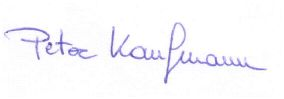 Peter Kaufmann